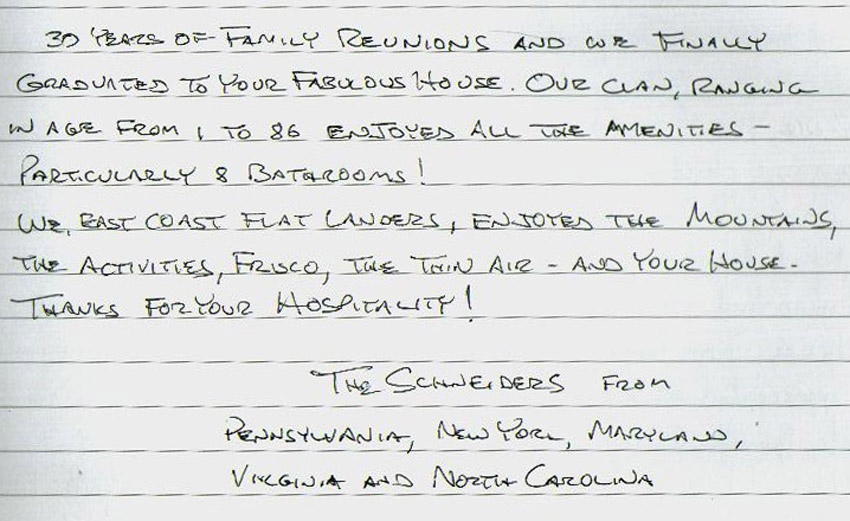 30 YEARS OF FAMILY REUNIONS AND WE FINALLY
GRADUATED TO YOUR FABULOUS HOUSE. OUR CLAN, RANGING
IN AGE FROM 1 TO 86 ENJOYED ALL THE AMENITIES –
PARTICULARLY 8 BATHROOMS!
WE, EAST COAST FLAT LANDERS, ENJOYED THE MOUNTAINS,
THE ACTIVITIES, FRISCO, THE THIN AIR – AND YOUR HOUSE.
THANKS FOR YOUR HOSPITALITY!
THE SCHNEIDERS FROM
PENNSYLVANIA, NEW YORK, MARYLAND,
VIRGINIA AND NORTH CAROLINA